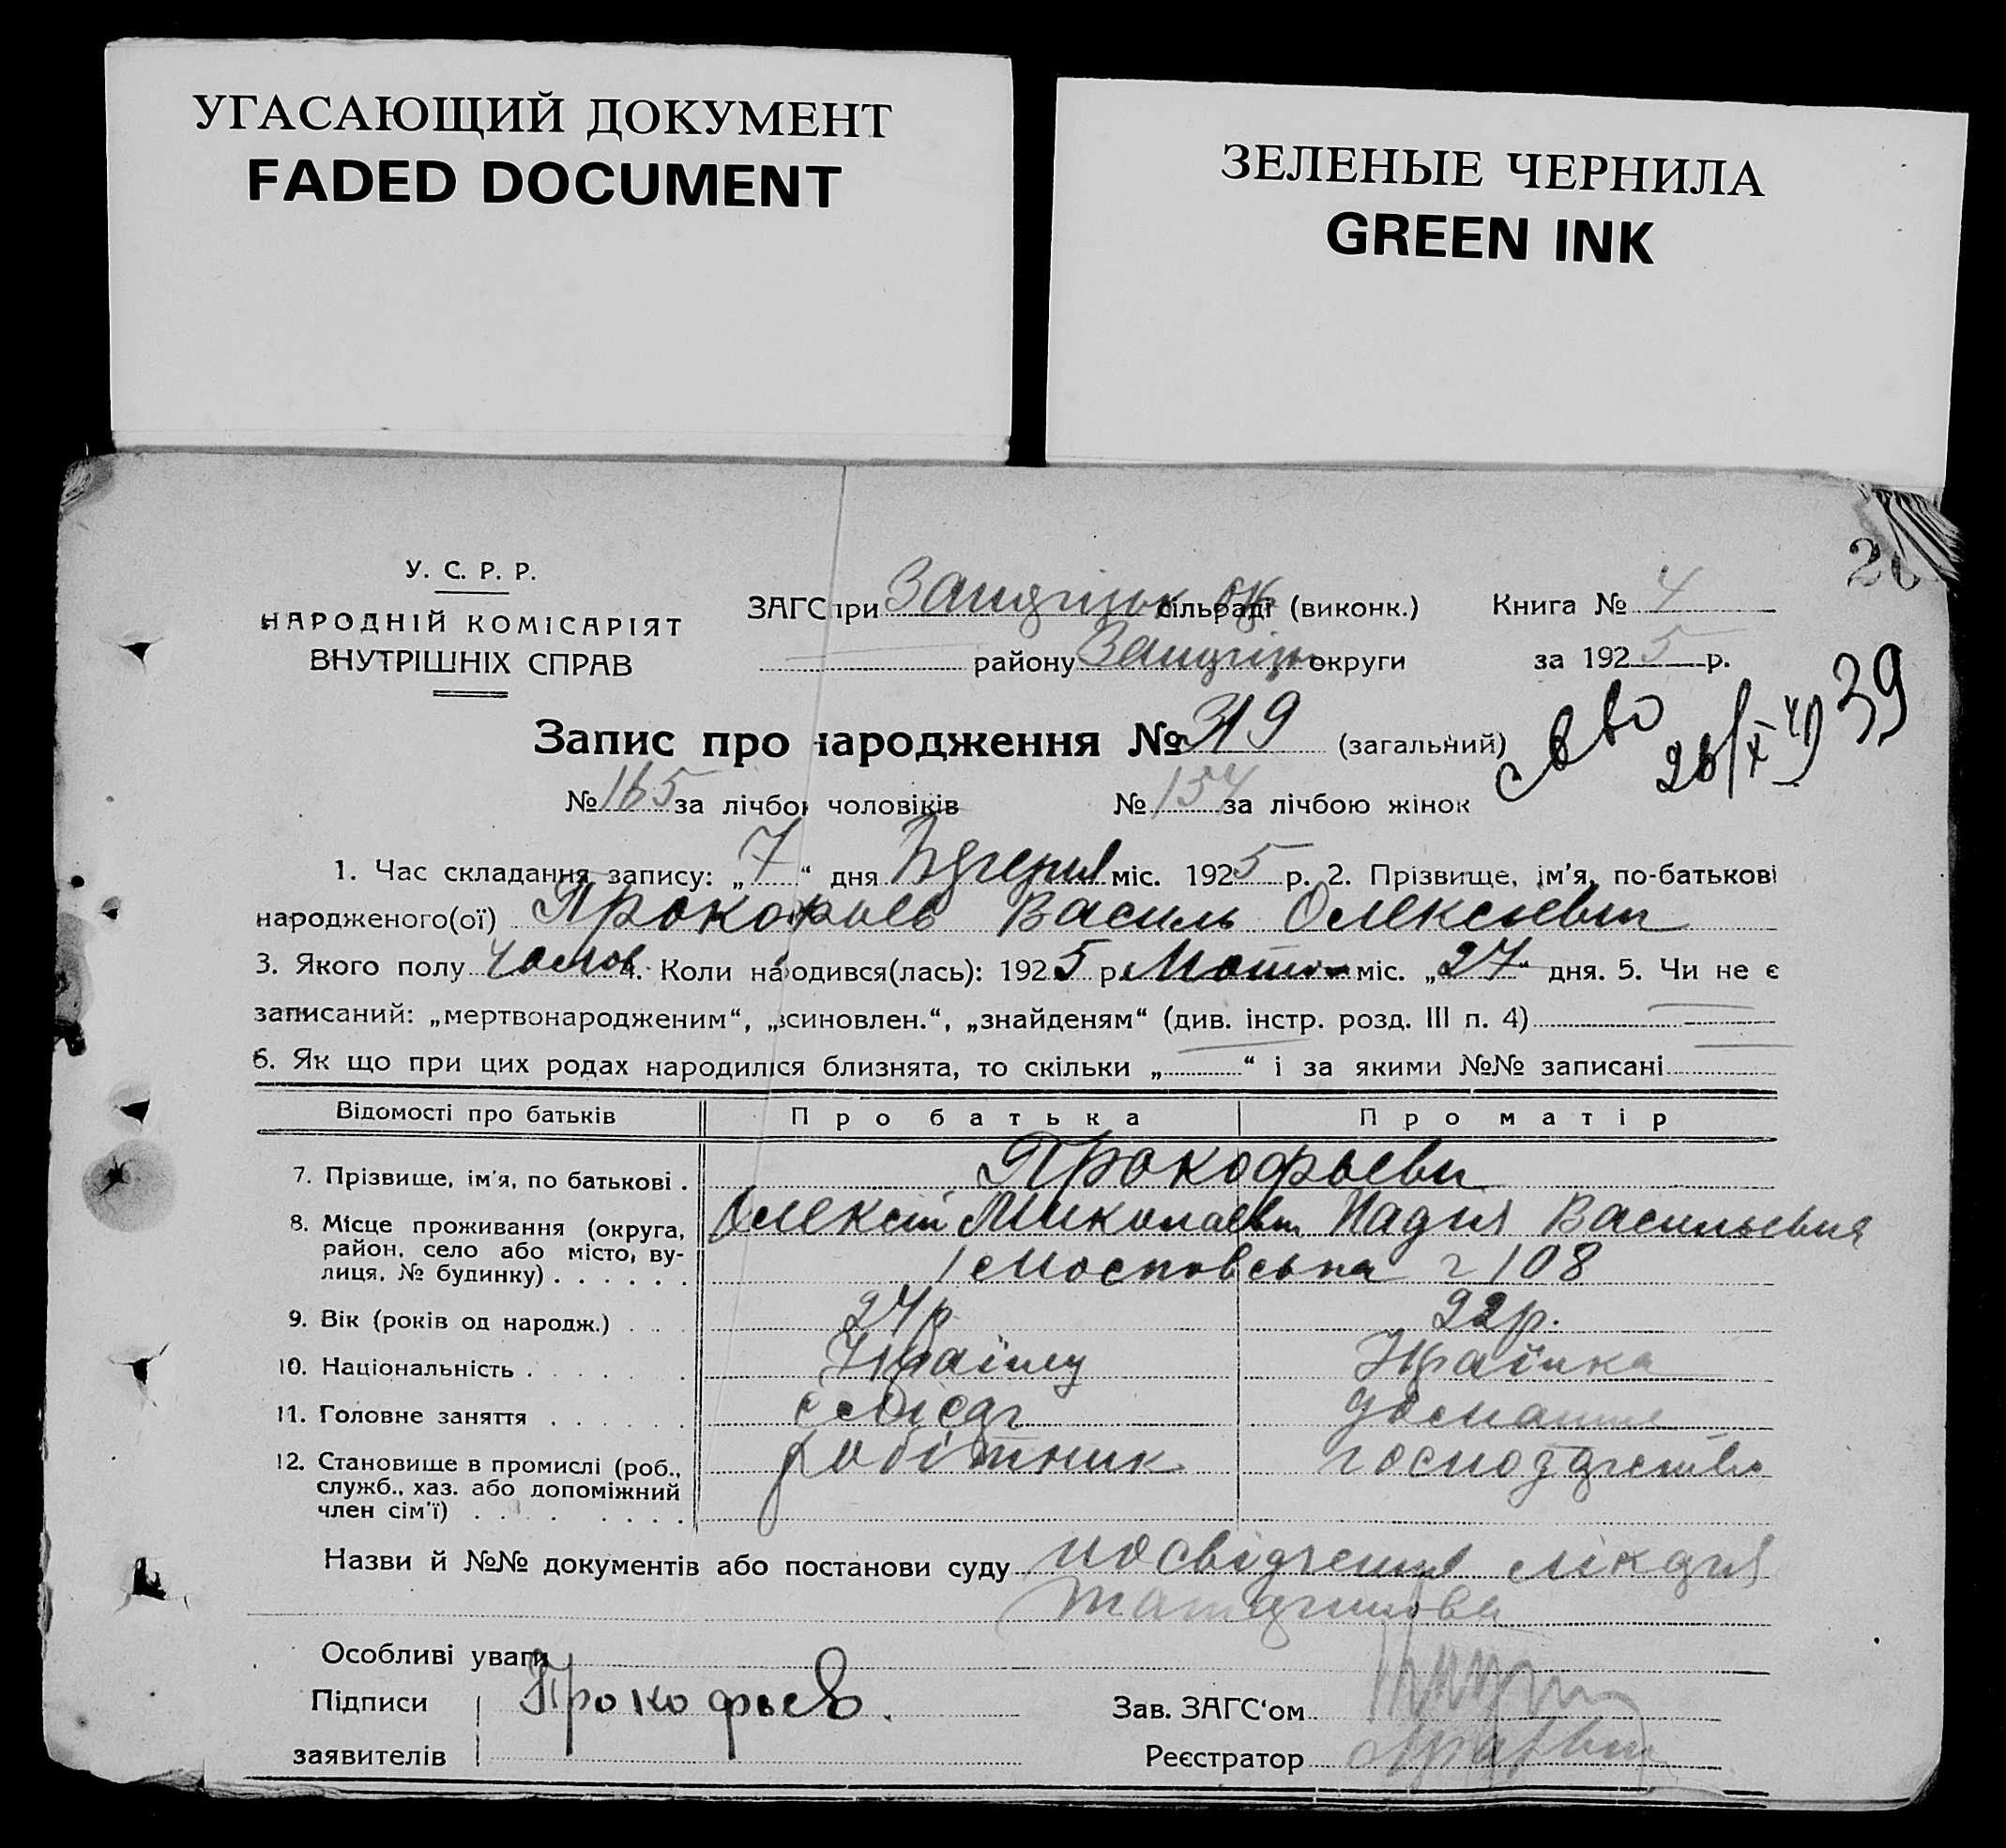 УГАСАЮЩИЙ ДОКУМЕНТ
FADED DOCUMENT
ЗЕЛЕНЫЕ ЧЕРНИЛА
GREEN INK
У. С. Р. Р.
НАРОДНІЙ КОМІСАРІЯТ
ВНУТРІШНІХ СПРАВ
ЗАГС при сільраді (виконк.)
району округи
Книга № 4
за 1925 р.
39
Запис про народження № 319 (загальний)
№ 165 за лічбою чоловіків № 154 за лічбою жінок
1. Час складання запису: „7“ дня міс. 1925 р. 2. Прізвище, ім'я, по-батькові
народженого(ої) Прокофьєв Василь Олексієвич
3. Якого полу чолов. 4. Коли народився(лась): 1925 р. міс. „27“ дня. 5. Чи не є
записаний: „мертвонародженим“, „всиновлен.“, „знайденям“ (див. інстр. розд. III п. 4)
6. Як що при цих родах народилися близнята, то скільки „ “ і за якими №№ записані
Відомості про батьків Про батька Про матір
7. Прізвище, ім'я, по батькові . Прокофьєви
8. Місце проживання (округа, район, село або місто, вулиця, № будинку) . . . . . . Олексій Миколаєвич Надія Васильевна
Московська 108
9. Вік (років од народж.) . . . 27 р. 22 р.
10. Національність . . . . . . Українка
11. Головне заняття . . . . . . слюсар домашнє
12. Становище в промислі (роб., служб., хаз. або допоміжний член сім'ї) . . . . . . . . робітник господарство
Назви й №№ документів або постанови суду посвідчення лікаря
Особливі уваги
Підписи Прокофьев.
заявителів
Зав. ЗАГС‘ом
Реєстратор